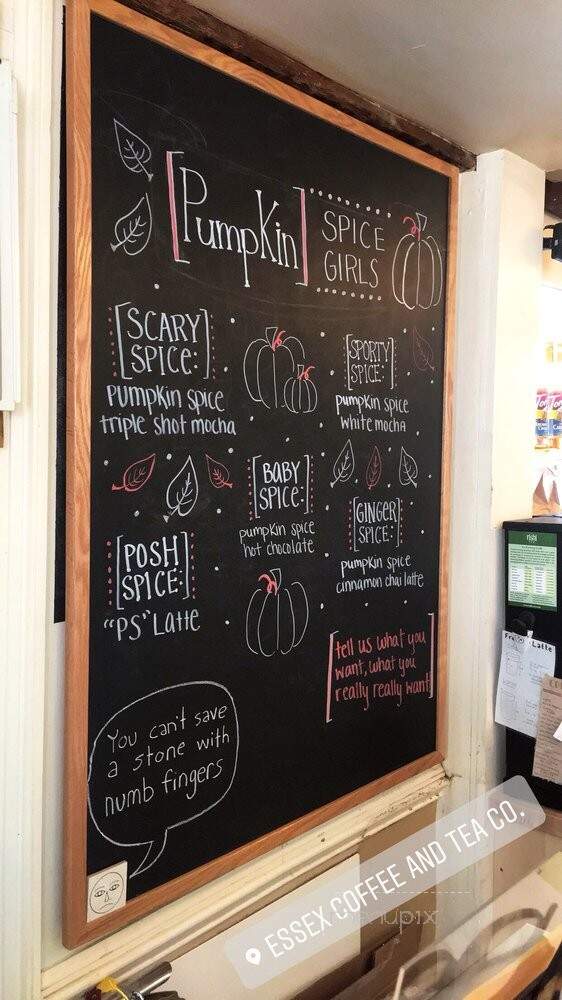 [Pumpkin]
SPICE
GIRLS
[SCARY
SPICE:]
pumpkin spice
triple shot mocha
[SPORTY
SPICE:]
pumpkin spice
white mocha
[BABY
SPICE:]
pumpkin spice
hot chocolate
[GINGER
SPICE:]
pumpkin spice
cinnamon chai latte
[POSH
SPICE:]
"PS" Latte
[tell us what you
want, what you
really really want]
You can't save
a stone with
numb fingers
Latte
ESSEX COFFEE AND TEA CO.
menupix